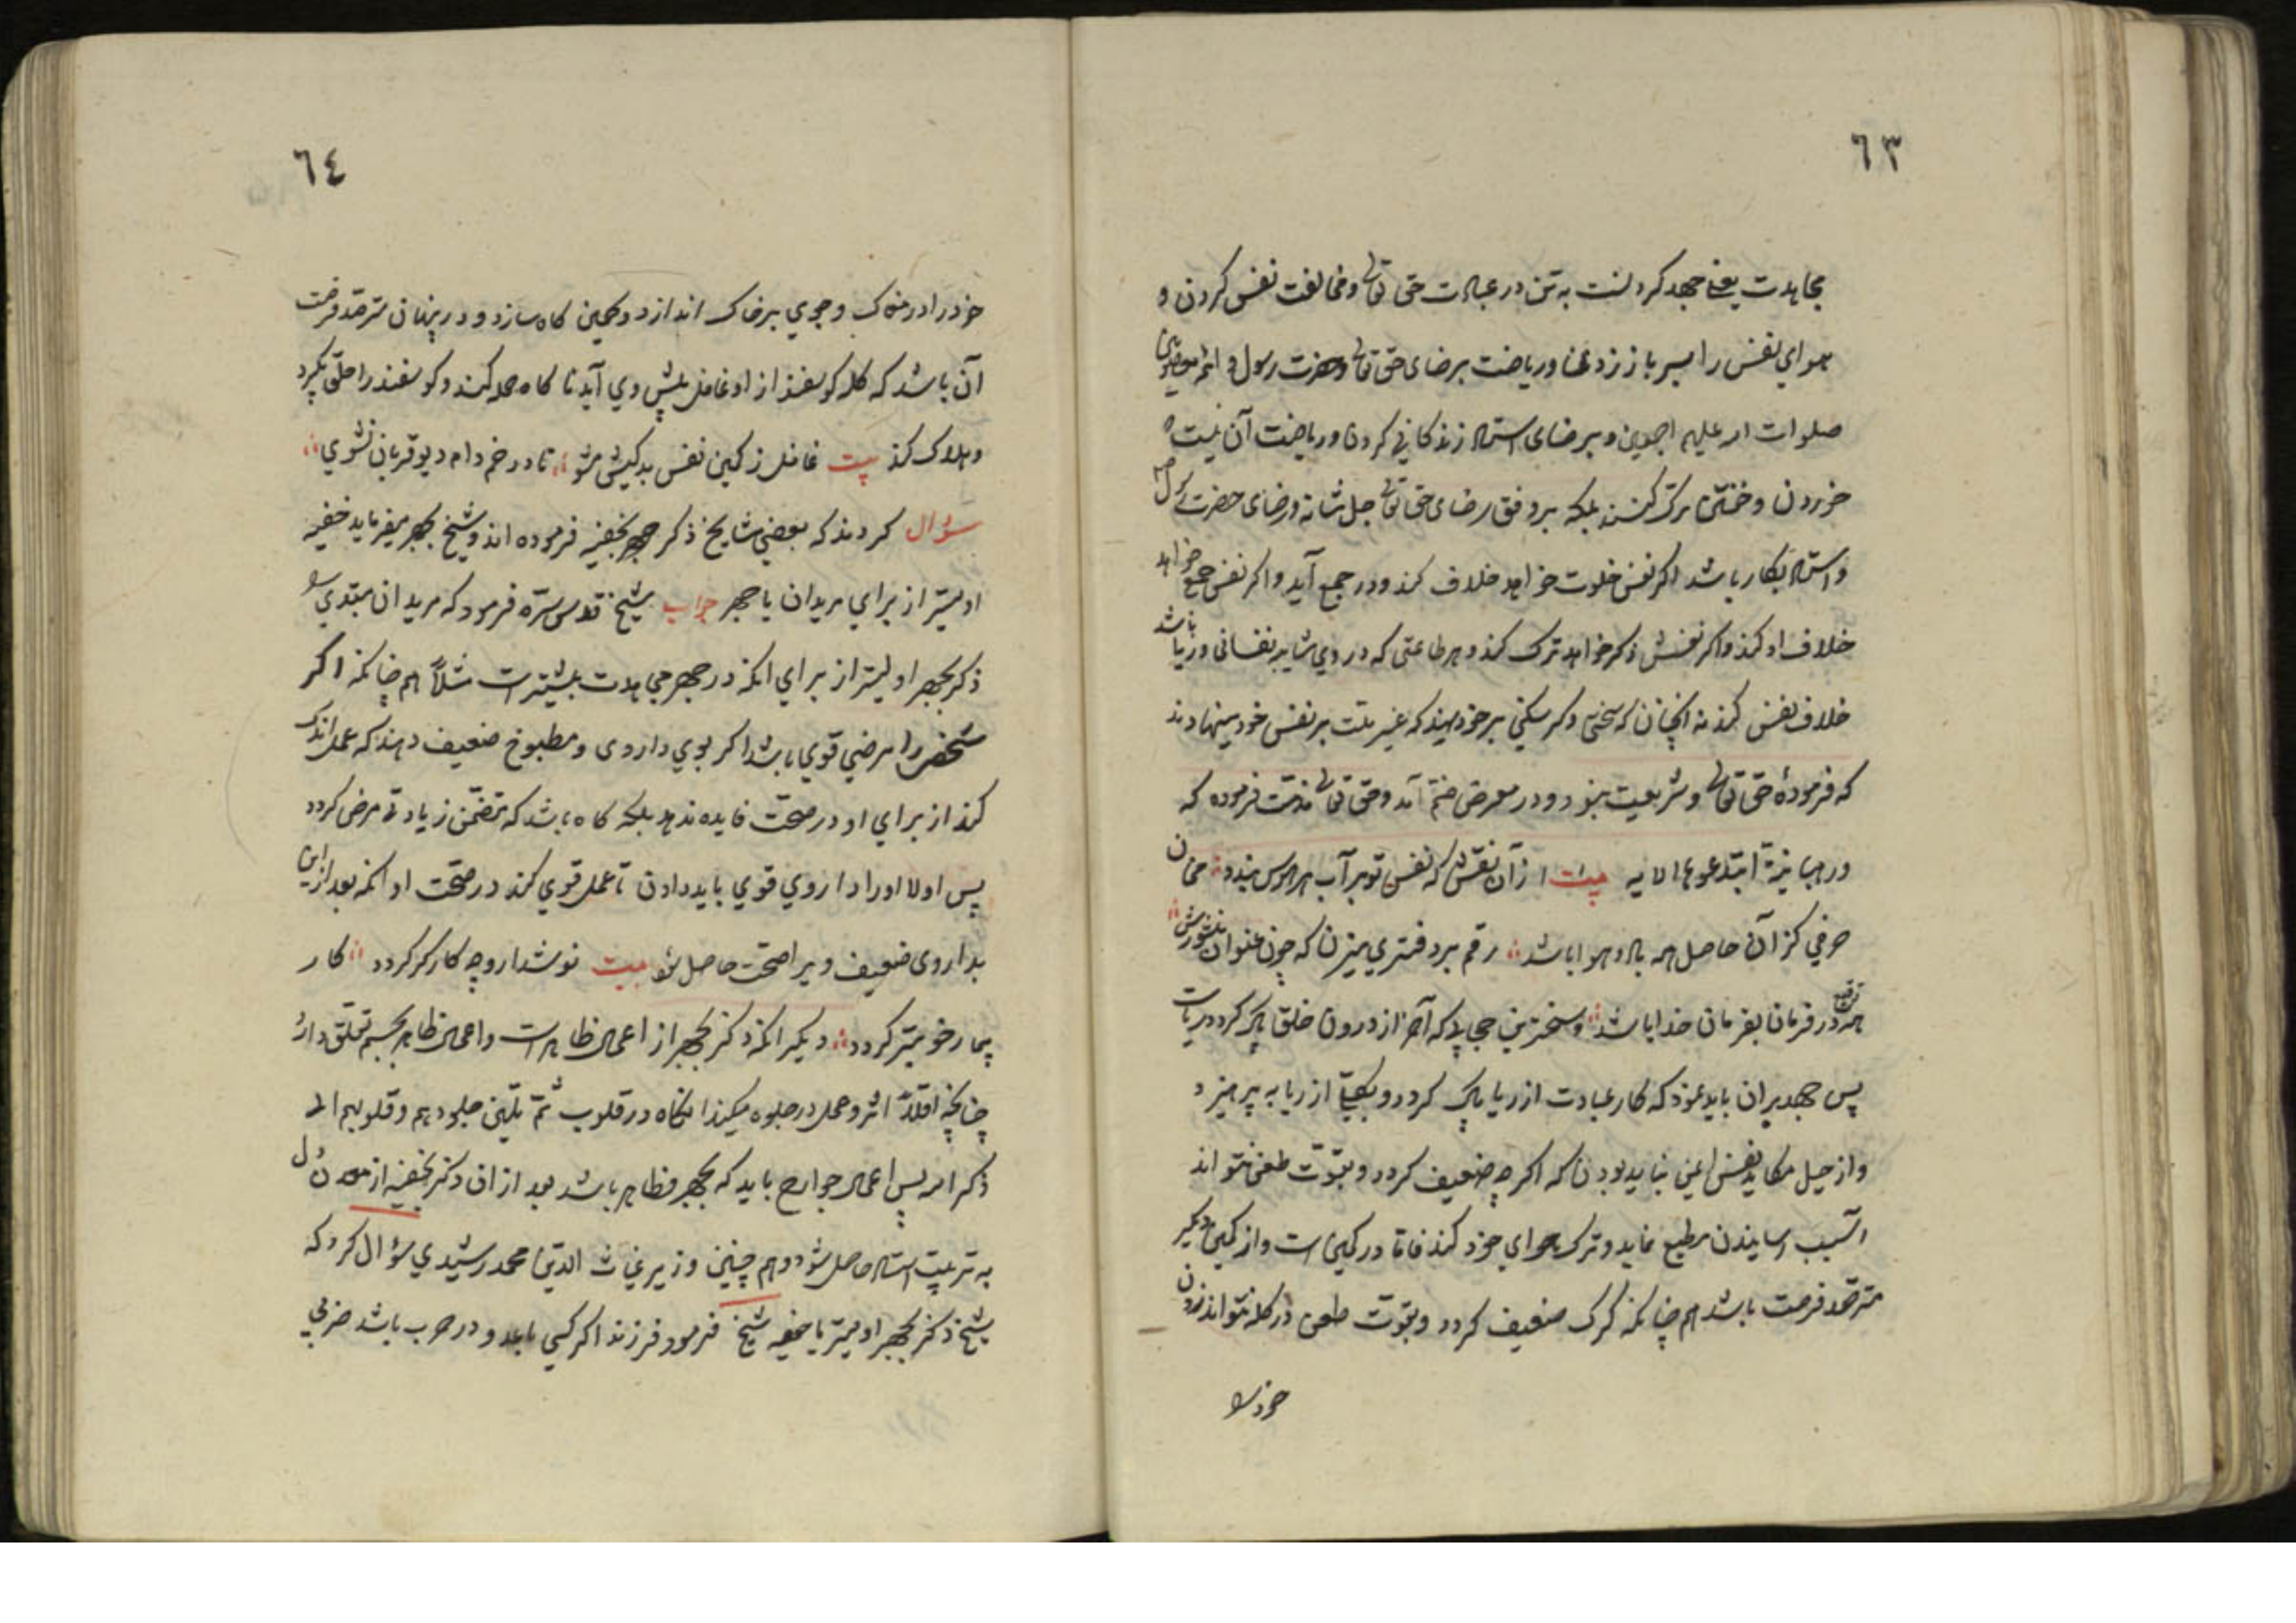 ٦٣
مجاهدت یعنی جهد کردنست به تن در عبادت حق تعالی و مخالفت نفس کردن و
هوای نفس را سر باز زدن و ریاضت برضای حق تعالی و حضرت رسول و ائمه معصومین
صلوات الله علیهم اجمعین و برضای استاد زندکانی کردن و ریاضت آن نیست که
خوردن و خفتن ترک کنند بلکه بر وفق رضای حق تعالی جل شانه و رضای حضرت رسول
و استاد بکار باشد اکر نفس خلوت خواهد خلاف کند و در جمع آید و اکر نفس جمع خواهد
خلاف او کند و اکر نفسش ذکر خواهد ترک کند و هر طاعتی که در وی شایبه نفسانی و ریا باشد
خلاف نفس کند نه انچنان که سختی و کرسنکی بر خود نهند که غیر ملت بر نفس خود مینهادند
که فرمودهٔ حق تعالی و شریعت نبود و در معرض ذم آمد و حق تعالی مذمت فرموده که
و رهبانیة ابتدعوها الایه بیت از آن نقش که نفس تو بر آب هر هوس بندد مخوان
حرفی کز آن حاصل همه باد و هوا باشد رقم بر دفتری میزن که چون عنوان منشورش
همه توقیع در فرمان بفرمان خدا باشد و سخترین حجابی که آخر از درون خلق پاک کردد ریاست
پس جهد بر آن باید نمود که کار عبادت از ریا پاک کردد و بکلی از ریا به پرهیزد
و از حیل مکاید نفس ایمن نباید بودن که اکر چه ضعیف کردد و بقوت طعن نتواند
آسیب رسانیدن مطیع نماید و ترک هوای خود کند فاما در کمین است و از کمین دیکر
مترصد فرصت باشد هم چنانکه کرک ضعیف کردد و بقوت طعن در کله نتواند زدن
خود را
٦٤
خود را در مغاک و جوی بر خاک اندازد و کمین کاه سازد و در پنهان مترصد فرصت
آن باشد که کله کوسفند از او غافل پیش وی آید تا کاه حمله کند و کوسفند را حلق بکیرد
و هلاک کند بیت غافل ز کمین نفس بدکیش مشو تا در خم دام دیو قربان نشوی
سؤال کردند که بعضی مشایخ ذکر بخفیه فرموده اند و شیخ بجهر میفرماید خفیه
اولیتر از برای مریدان یا جهر جواب شیخ قدس سره فرمود که مریدان مبتدی را
ذکر بجهر اولیتر از برای انکه در جهر مجاهدت بیشتر است مثلاً هم چنانکه اکر
شخص را مرضی قوی باشد اکر بوی داروی و مطبوخ ضعیف دهند که عمل اندک
کند از برای او در صحت فایده ندهد بلکه کاه باشد که متضمن زیادتی مرض کردد
پس اولا او را داروی قوی باید دادن تا عمل قوی کند در صحت او انکه بعد از این
بداروی ضعیف ویرا صحت حاصل شود بیت نوشدارو چه کارکر کردد کار
بیمار خوبتر کردد دیکر انکه ذکر بجهر از اعمال ظاهر است و اعمال ظاهر بجسم تعلق دارد
چنانچه اولاً اثر و عمل در جلود میکند انکاه در قلوب ثم تلین جلودهم و قلوبهم الی
ذکر الله پس اعمال جوارح باید که بجهر و ظاهر باشد بعد از ان ذکر بخفیه از معدن دل
به تربیت استاد حاصل شود و هم چنین وزیر غیاث الدین محمد رشیدی سؤال کرد که
شیخ ذکر بجهر اولیتر یا خفیه شیخ فرمود فرزند اکر کسی باید و در حرب باشد ضربی